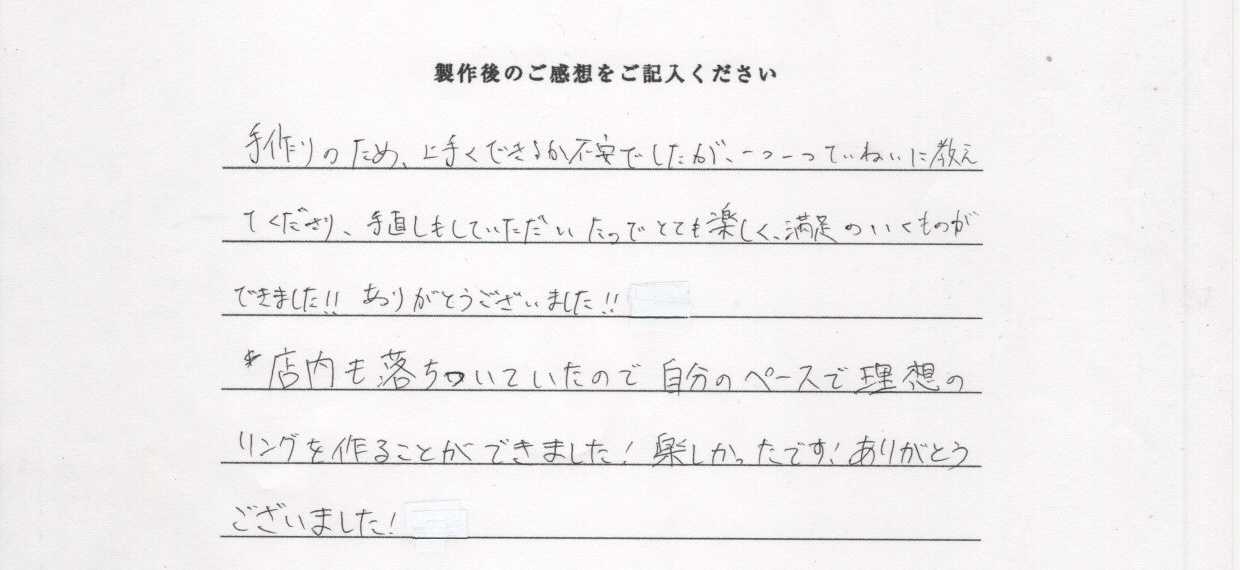 製作後のご感想をご記入ください
手作りのため、上手くできるか不安でしたが、一つ一つていねいに教え
てくださり、手直しもしていただいたのでとても楽しく、満足のいくものが
できました!! ありがとうございました!!
*店内も落ちついていたので自分のペースで理想の
リングを作ることができました! 楽しかったです! ありがとう
ございました!